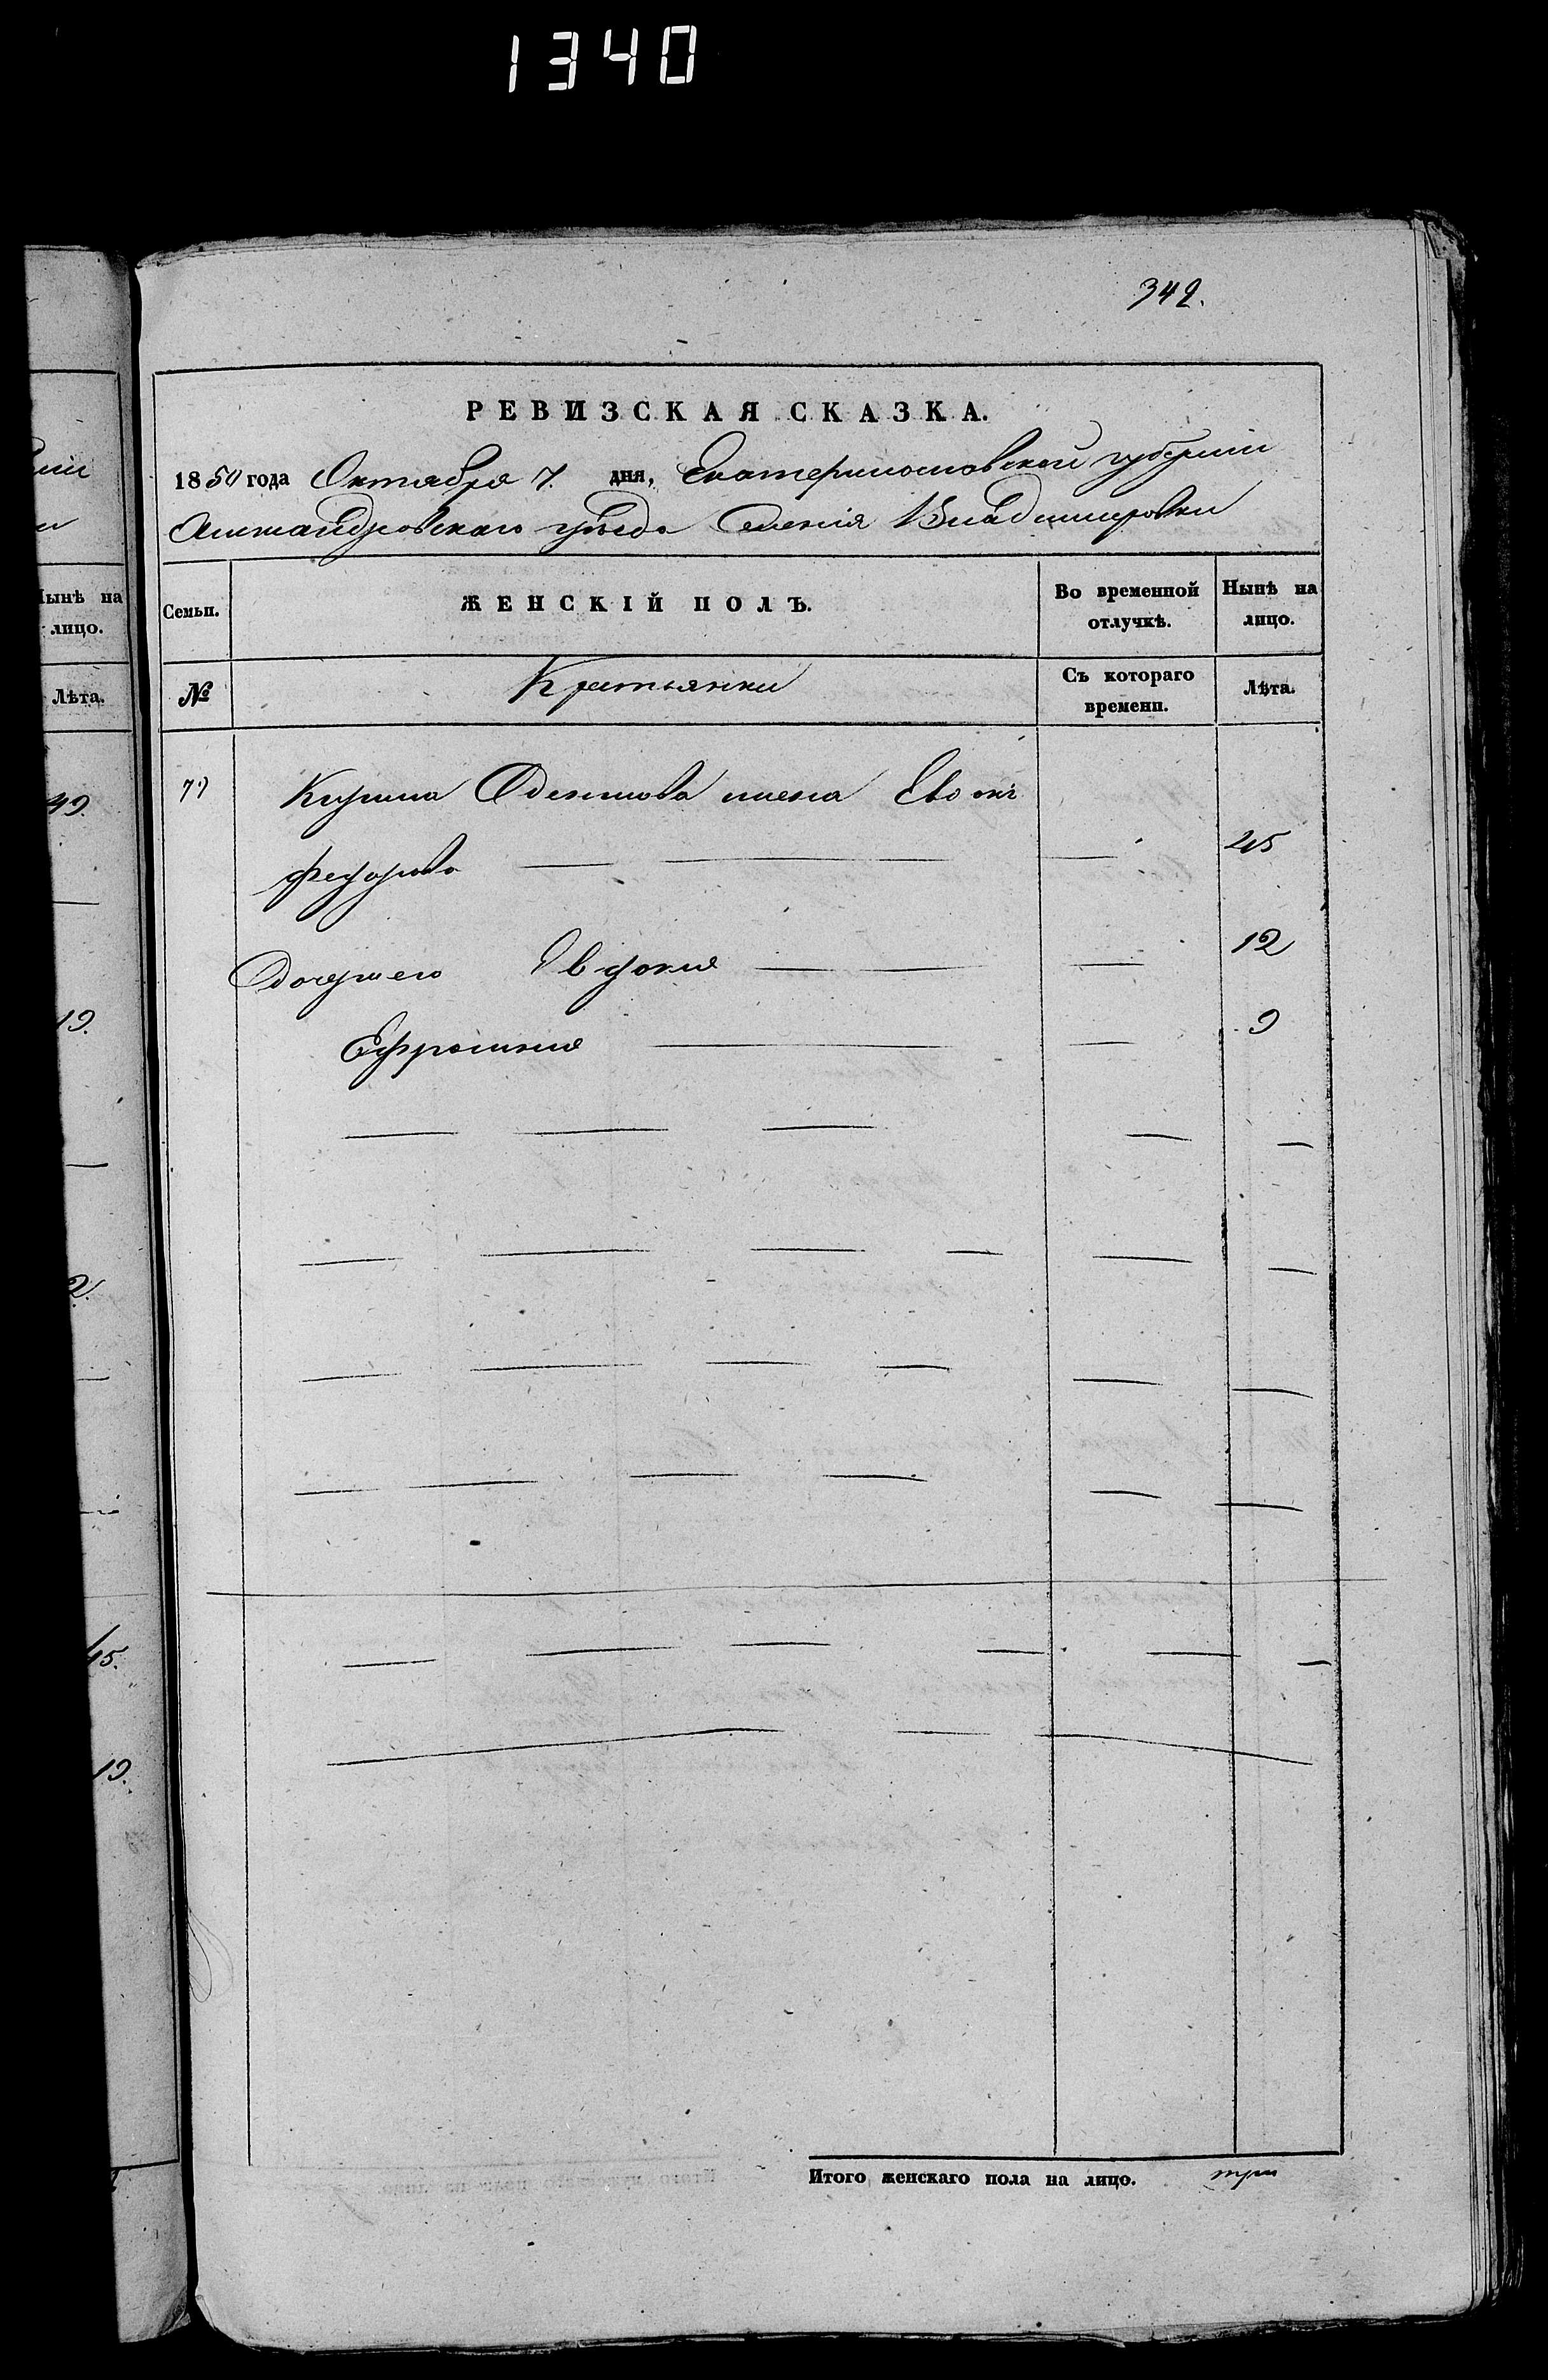 1340
342.
РЕВИЗСКАЯ СКАЗКА.
1850 года Октября 7. дня, Екатеринославской губернии
Александровскаго уѣзда Селенія Владимировки
Семьи.
ЖЕНСКІЙ ПОЛЪ.
Во временной отлучкѣ.
Нынѣ на лицо.
№
Крестьянки
Съ котораго времени.
Лѣта.
Нынѣ на
лицо.
Лѣта.
49.
19.
2.
45.
19.
Кирила жена
Федорова — — — 45
Дочери его Евдокия — — — 12
Ефросиния — — 9
Итого женскаго пола на лицо. три